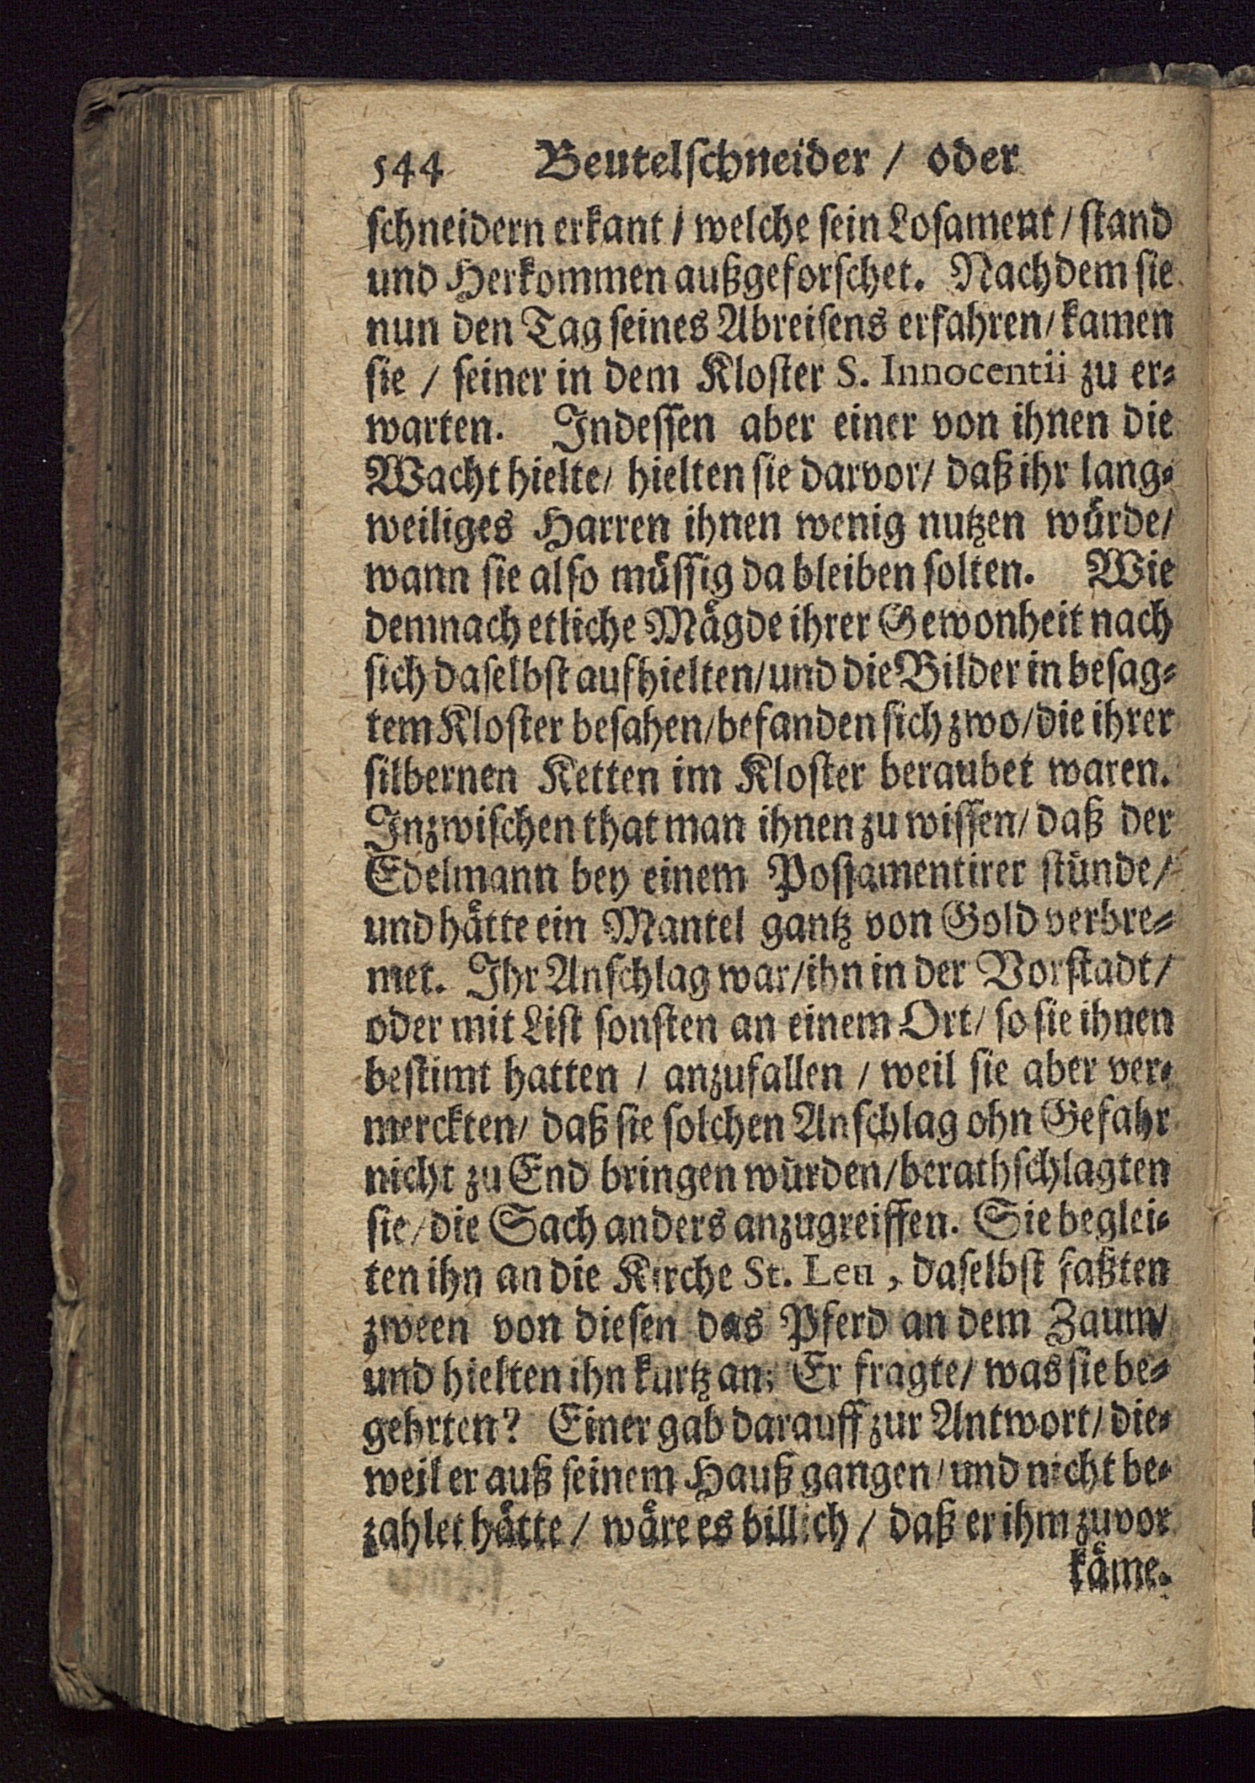 544 Beutelschneider / oder
schneidern erkant / welche sein Losament / stand
und Herkommen außgeforschet. Nachdem sie
nun den Tag seines Abreisens erfahren / kamen
sie / seiner in dem Kloster S. Innocentii zu er-
warten. Indessen aber einer von ihnen die
Wacht hielte / hielten sie darvor / daß ihr lang-
weiliges Harren ihnen wenig nutzen würde /
wann sie also müssig da bleiben solten. Wie
demnach etliche Mägde ihrer Gewonheit nach
sich daselbst aufhielten / und die Bilder in besag-
tem Kloster besahen / befanden sich zwo / die ihrer
silbernen Ketten im Kloster beraubet waren.
Inzwischen that man ihnen zu wissen / daß der
Edelmann bey einem Possamentirer stünde /
und hätte ein Mantel gantz von Gold verbre-
met. Ihr Anschlag war / ihn in der Vorstadt /
oder mit List sonsten an einem Ort / so sie ihnen
bestimt hatten / anzufallen / weil sie aber ver-
merckten / daß sie solchen Anschlag ohn Gefahr
nicht zu End bringen würden / berathschlagten
sie / die Sach anders anzugreiffen. Sie beglei-
ten ihn an die Kirche St. Leu, daselbst faßten
zween von diesen das Pferd an dem Zaum /
und hielten ihn kurtz an; Er fragte / was sie be-
gehrten? Einer gab darauff zur Antwort / die-
weil er auß seinem Hauß gangen / und nicht be-
zahlet hätte / wäre es billich / daß er ihm zuvor
käme.